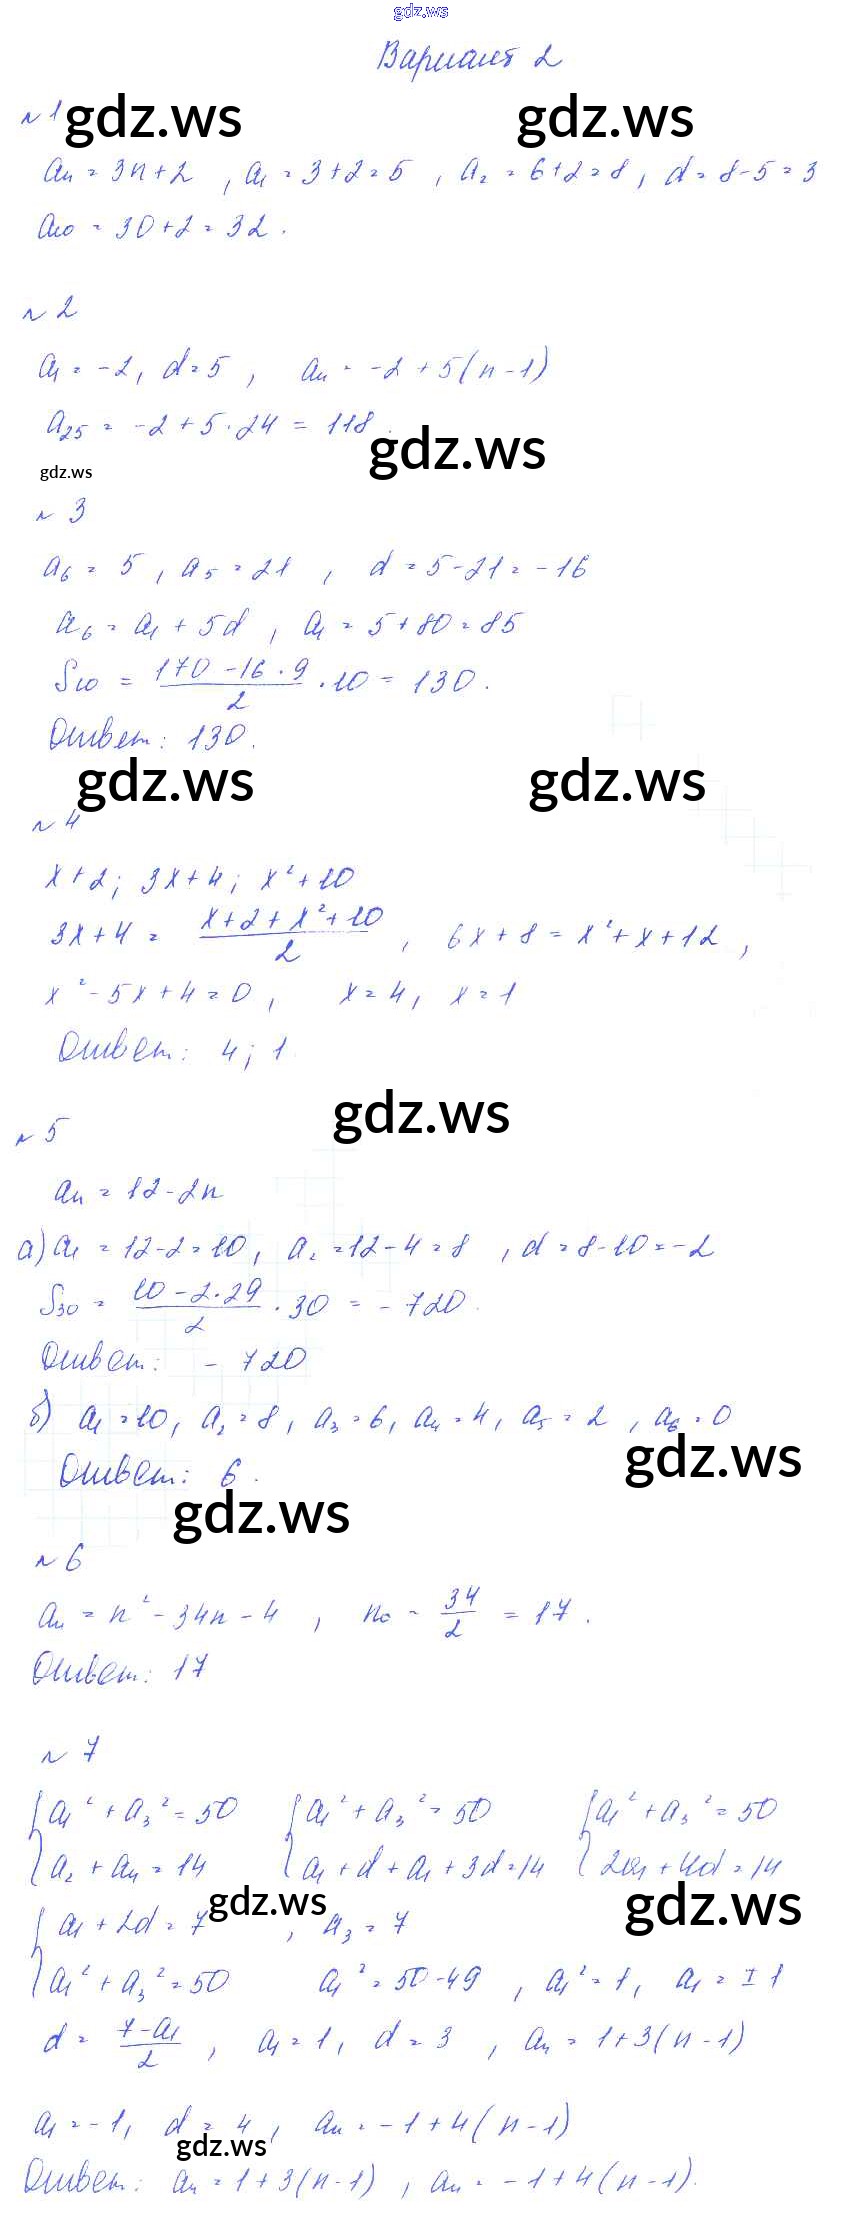 gdz.ws
Вариант 2
n 1
gdz.ws gdz.ws
an = 3n+2 , a1 = 3+2=5 , a2 = 6+2=8, d = 8-5=3
a10 = 30+2=32.
n 2
a1 = -2, d=5 , an = -2+5(n-1)
a25 = -2+5·24 = 118.
gdz.ws
gdz.ws
n 3
a6 = 5 , a5 = 21 , d = 5-21=-16
a6 = a1 + 5d , a1 = 5+80=85
S10 = (170-16·9)/2 ·10 = 130.
Ответ: 130.
gdz.ws gdz.ws
n 4
x+2; 3x+4; x²+10
3x+4 = (x+2+x²+10)/2 , 6x+8=x²+x+12 ,
x²-5x+4=0 , x=4, x=1
Ответ: 4; 1
gdz.ws
n 5
an = 12-2n
а) a1 = 12-2=10, a2 =12-4=8 , d = 8-10=-2
S30 = (10-2·29)/2 · 30 = -720.
Ответ: - 720
б) a1 =10, a2=8, a3=6, an=4, a5=2 , a6=0
gdz.ws
Ответ: 6.
gdz.ws
n 6
an = n²-34n-4 , n0 = 34/2 = 17.
Ответ: 17
n 7
{a1² + a3² = 50 {a1² + a3² = 50 {a1² + a3² = 50
{a2 + a4 = 14 {a1 + d + a1 + 3d=14 {2a1 + 4d = 14
gdz.ws gdz.ws
{a1 + 2d = 7 , a3 = 7
{a1² + a3² = 50 a1² = 50-49 , a1² = 1, a1 = ±1
d = (7-a1)/2 , a1 = 1, d = 3 , an = 1+3(n-1)
a1 = -1, d = 4 , an = -1+4(n-1)
gdz.ws
Ответ: an = 1+3(n-1) , an = -1+4(n-1).